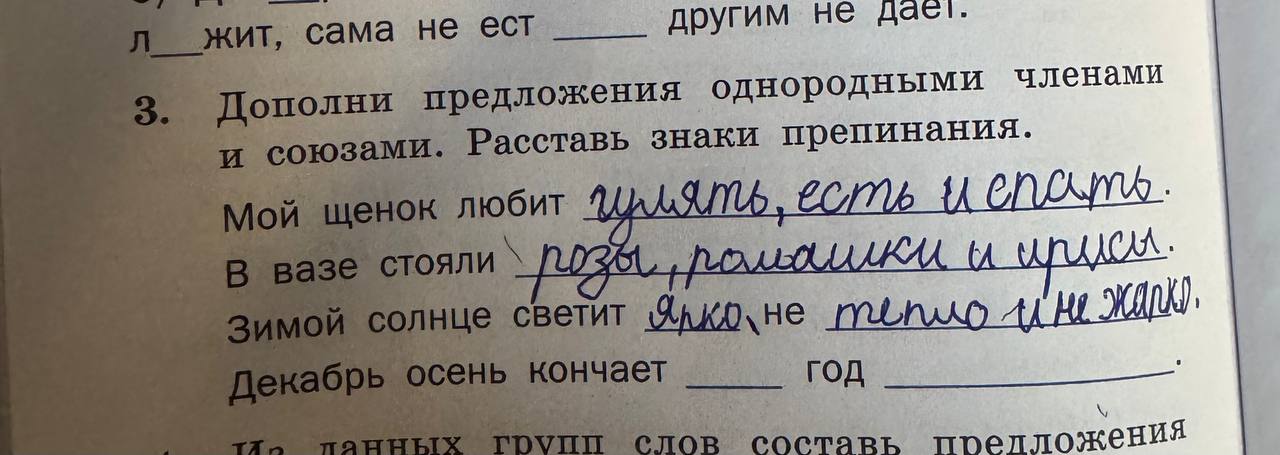 л__жит, сама не ест _____ другим не дает.
3. Дополни предложения однородными членами
и союзами. Расставь знаки препинания.
Мой щенок любит гулять, есть и спать.
В вазе стояли розы, ромашки и ирисы.
Зимой солнце светит ярко, не тепло и не жарко.
Декабрь осень кончает _____ год _______________.
Из данных групп слов составь предложения